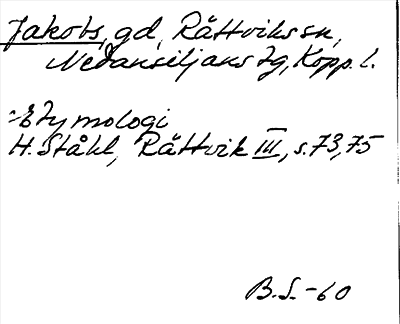 Jakobs, gd, Rättviks sn,
Nedansiljans tg, Kopp. l.
Etymologi
H. Ståhl, Rättvik III, s. 73, 75
B.S. -60